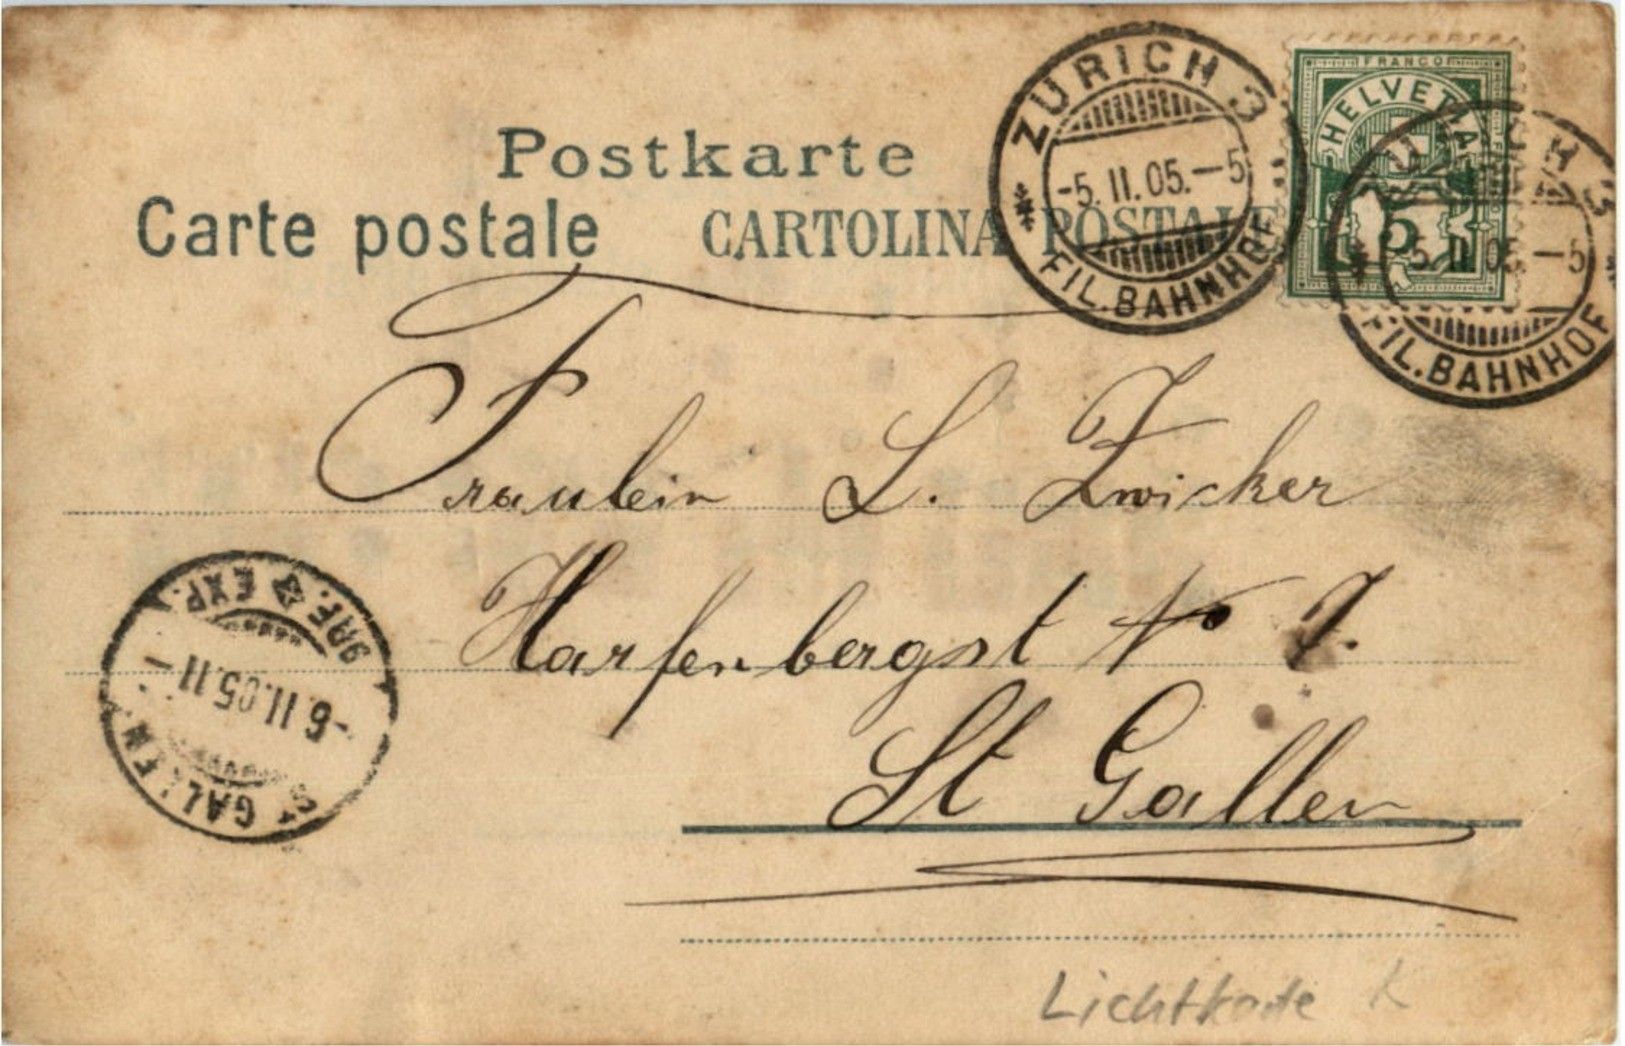 Postkarte
Carte postale CARTOLINA POSTALE
ZÜRICH 3
-5.II.05.-5
FIL.BAHNHOF
FRANCO
HELVETIA
5
ZÜRICH 3
-5.II.05.-5
FIL.BAHNHOF
Fraulein L. Zwicker
Harfenbergst N 7.
St Gallen
ST GALLEN.
-6.II.05.11-
BRF. EXP.
Lichtkarte